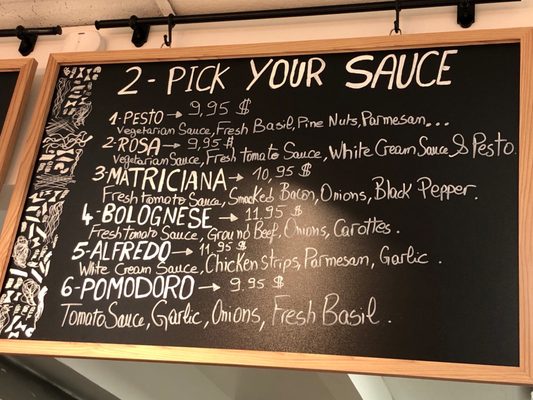 2- PICK YOUR SAUCE
1-PESTO → 9,95 $
Vegetarian Sauce, Fresh Basil, Pine Nuts, Parmesan...
2-ROSA → 9,95 $
Vegetarian Sauce, Fresh tomato Sauce, White Cream Sauce & Pesto.
3-MATRICIANA → 10,95 $
Fresh tomato Sauce, Smocked Bacon, Onions, Black Pepper.
4-BOLOGNESE → 11.95 $
Fresh Tomato Sauce, Ground Beef, Onions, Carottes.
5-ALFREDO → 11,95 $
White Cream Sauce, Chicken Strips, Parmesan, Garlic.
6-POMODORO → 9,95 $
Tomato Sauce, Garlic, Onions, Fresh Basil.